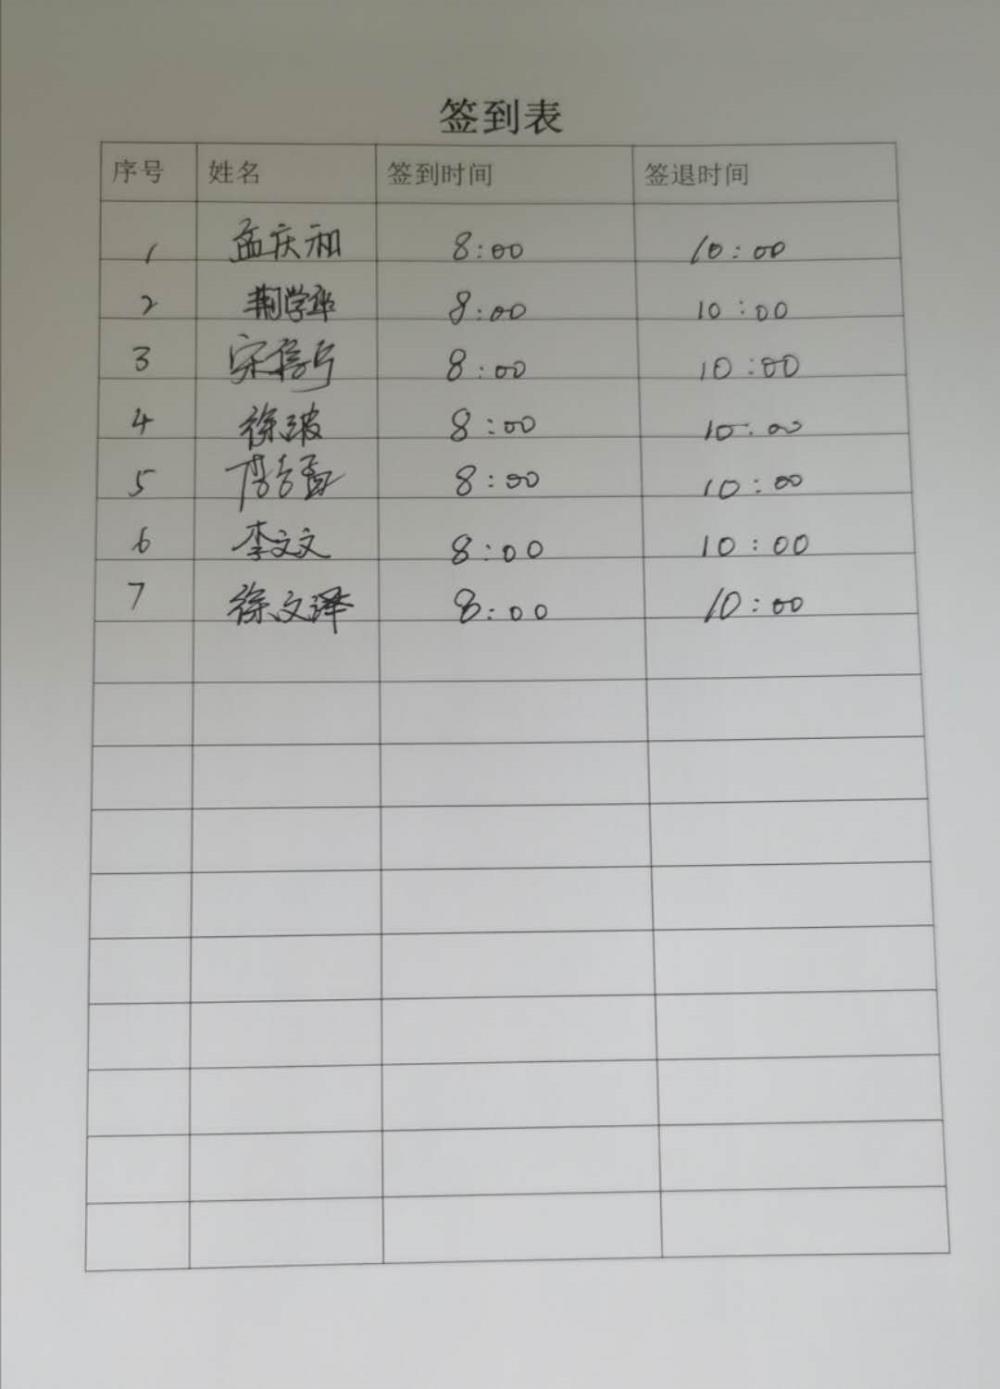 签到表
序号 姓名 签到时间 签退时间
1 孟庆和 8:00 10:00
2 荆学华 8:00 10:00
3 8:00 10:00
4 徐波 8:00 10:00
5 8:00 10:00
6 李文文 8:00 10:00
7 徐文泽 8:00 10:00